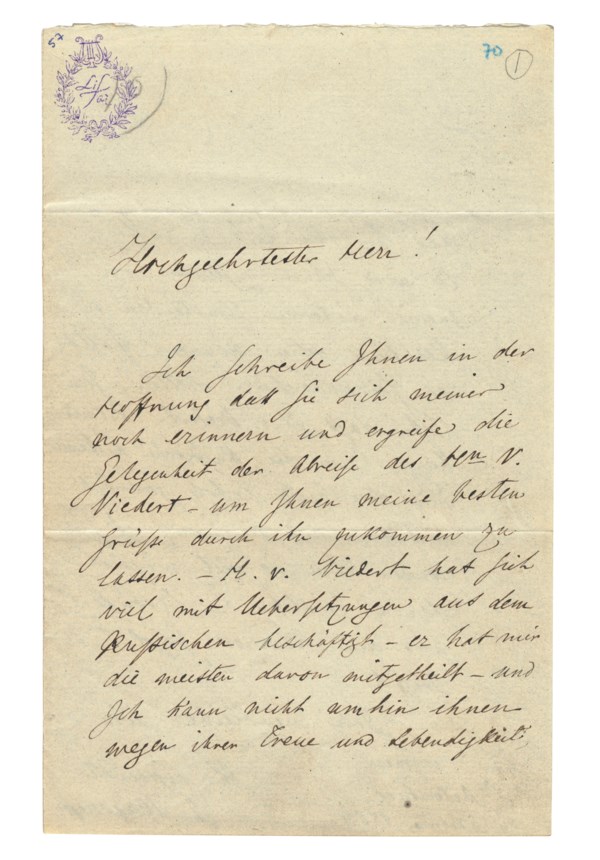 57
70
1
Hochgeehrtester Herr!
Ich schreibe Ihnen in der
Hoffnung daß Sie sich meiner
noch erinnern und ergreife die
Gelegenheit der Abreise des Hrn V.
Viedert – um Ihnen meine besten
Grüße durch ihn zukommen zu
lassen. – H. v. Viedert hat sich
viel mit Uebersetzungen aus dem
Russischen beschäftigt – er hat mir
die meisten davon mitgetheilt – und
Ich kann nicht umhin ihnen
wegen ihrer Treue und Lebendigkeit